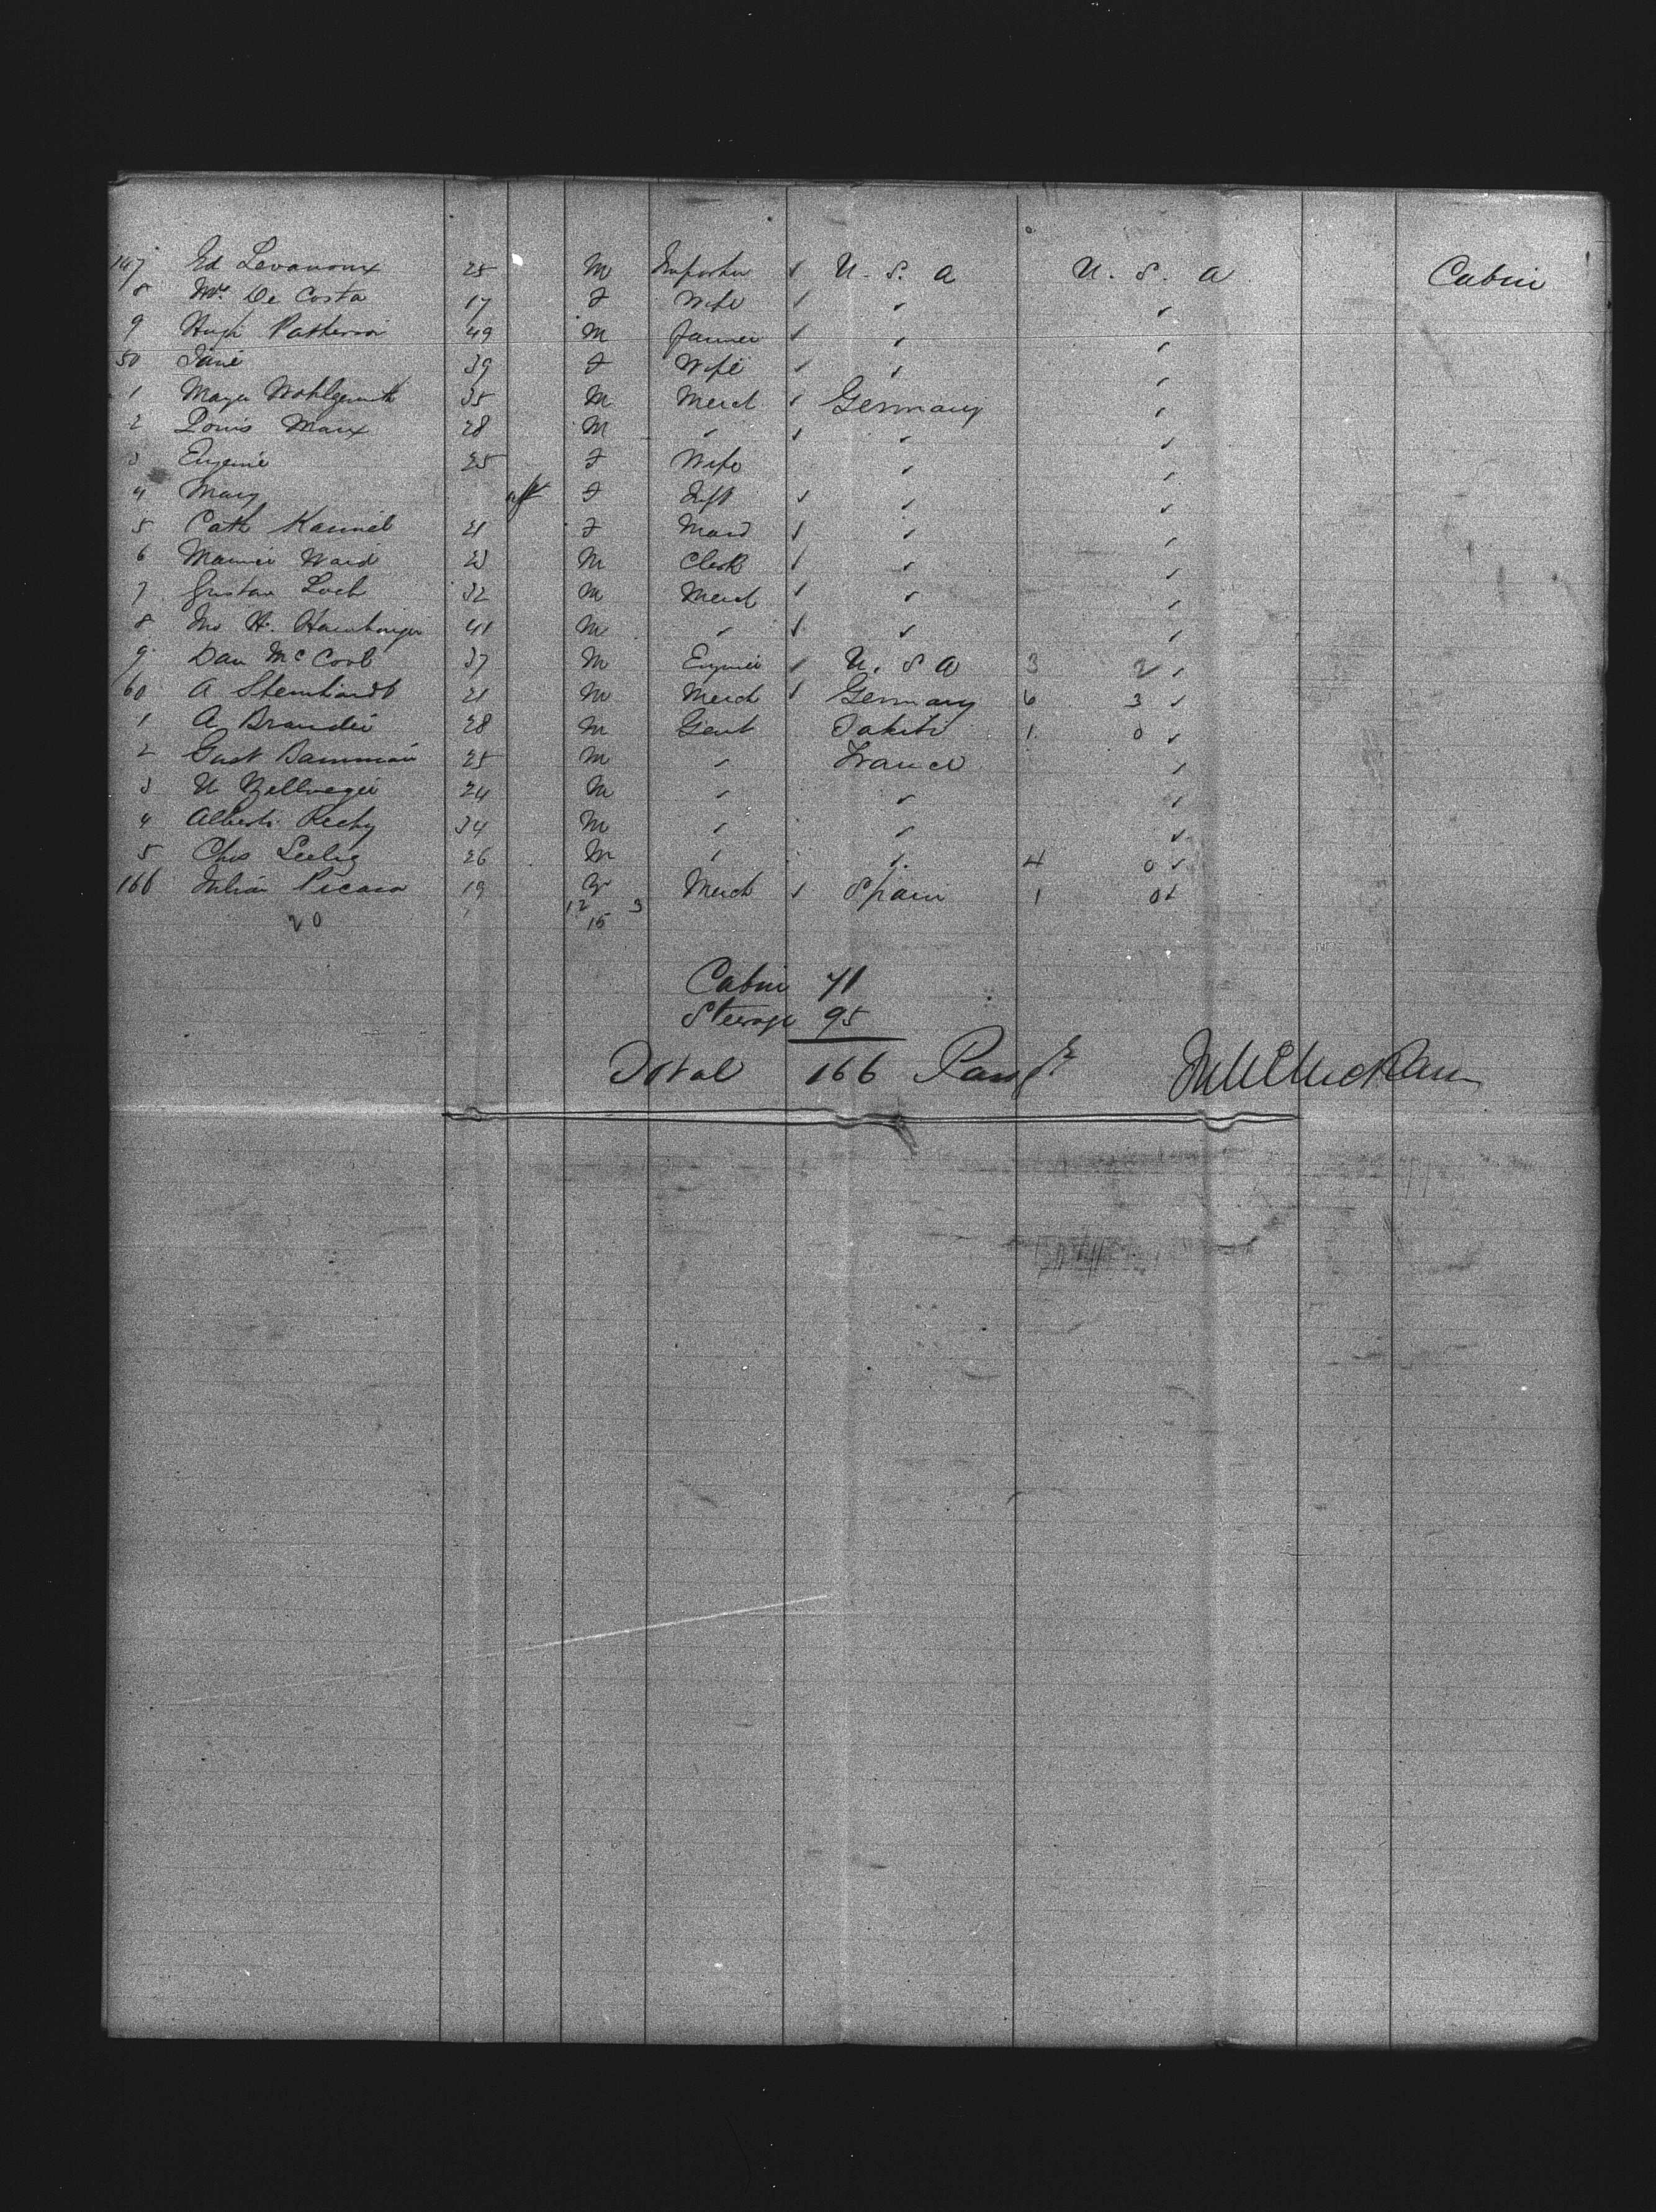 147 Ed Levanoux 25 M Importer ✓ U. S. A U. S. A Cabin
8 Mrs De Costa 17 F Wife ✓ ✓ ✓
9 Hugh Patterson 49 M Farmer ✓ ✓ ✓
50 Jane 39 F Wife ✓ ✓ ✓
1 Mayer Wohlgemuth 35 M Merch ✓ Germany ✓
2 Louis Marx 28 M ✓ ✓ ✓ ✓
3 Eugenie 25 F Wife ✓ ✓
4 Mary F Inft ✓ ✓ ✓
5 Cath 21 F Maid ✓ ✓ ✓
6 Ward 23 M Clerk ✓ ✓ ✓
7 Gustav Loeb 32 M Merch ✓ ✓ ✓
8 Jno H. 41 M ✓ ✓ ✓ ✓
9 Dan McCool 37 M ✓ U. S A 3 2 ✓
60 A Steinhardt 21 M Merch ✓ Germany 6 3 ✓
1 A Brander 28 M Gent Tahiti 1 0 ✓
2 Gust 25 M ✓ France ✓
3 24 M ✓ ✓ ✓
4 Albert 34 M ✓ ✓ ✓
5 Chs Seelig 26 M ✓ ✓ 4 0 ✓
166 Julian Picaso 19 Merch ✓ Spain 1 0 ✓
20 12 3
15
Cabin 71
Steerage 95
Total 166 Passgrs